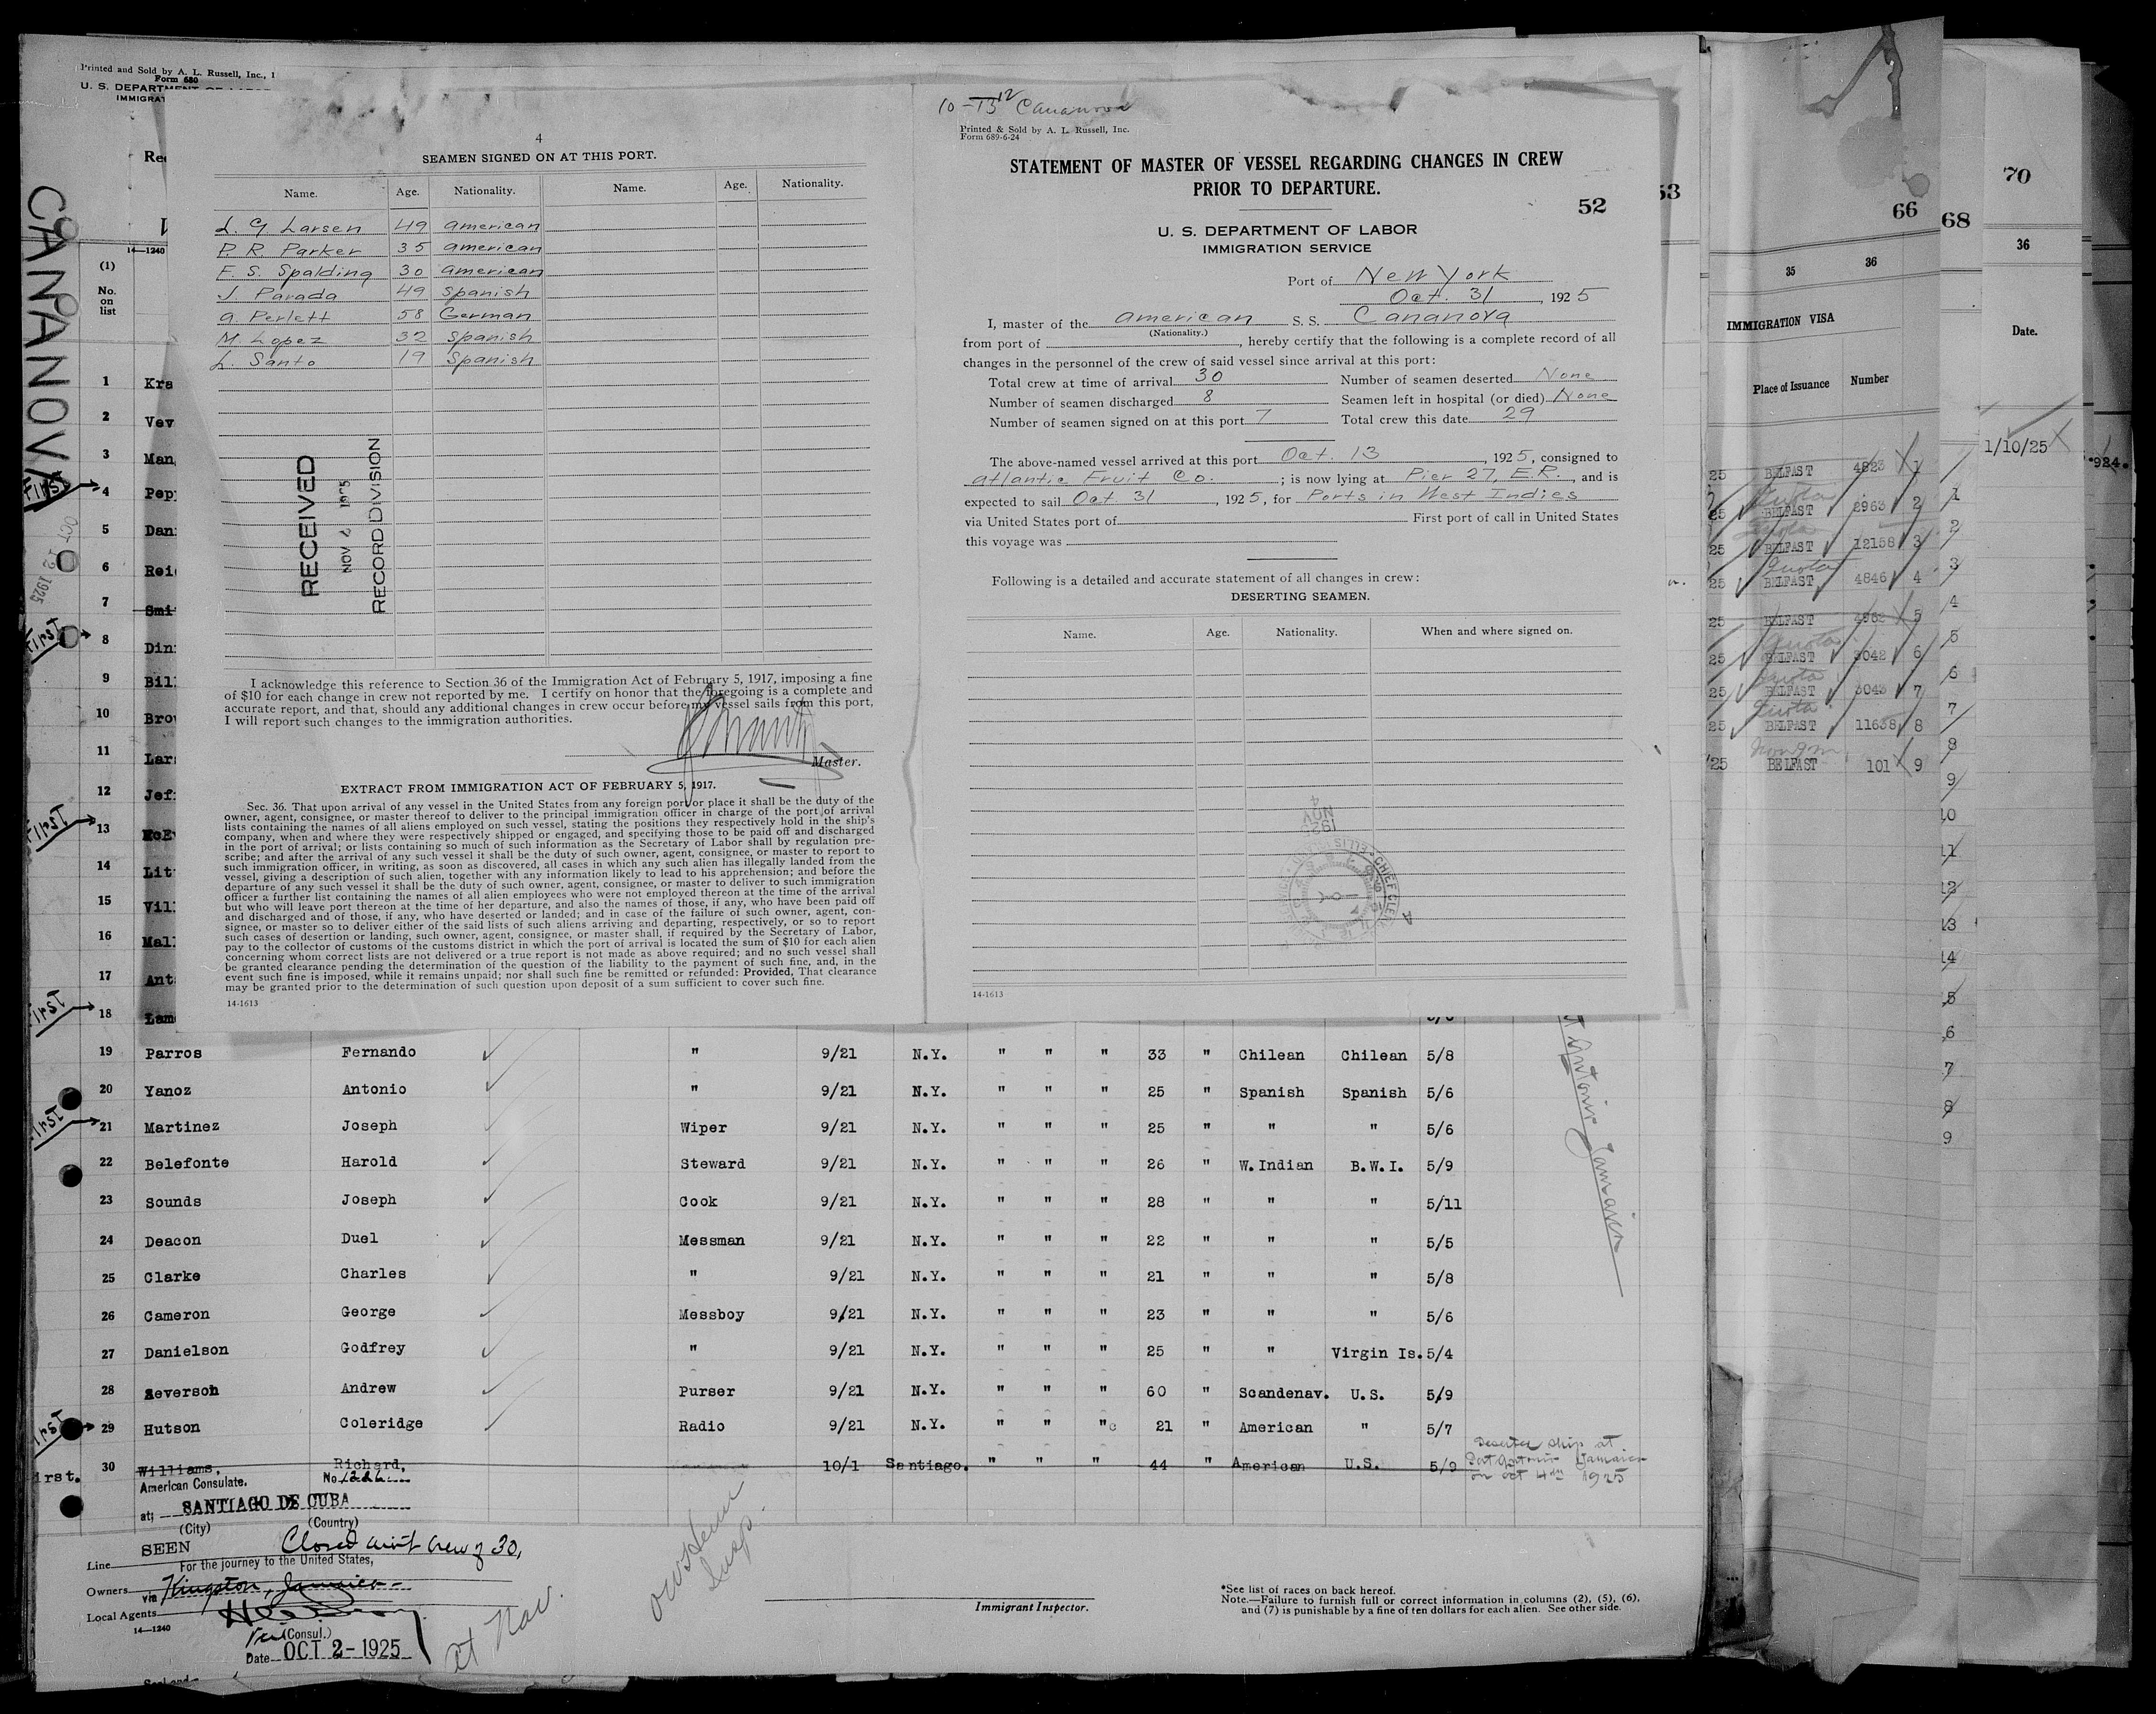 Printed and Sold by A. L. Russell, Inc.,
Form 680
U. S. DEPARTMENT OF LABOR
IMMIGRAT
CANANOVA
(1)
No.
on
list
14—1240
4
SEAMEN SIGNED ON AT THIS PORT.
Name. Age. Nationality. Name. Age. Nationality.
L. G Larsen 49 American
P. R. Parker 35 American
E. S. Spalding 30 American
J. Parada 49 Spanish
A. Perlett 58 German
M. Lopez 32 Spanish
L. Santo 19 Spanish
RECEIVED
NOV 4 1925
RECORD DIVISION
I acknowledge this reference to Section 36 of the Immigration Act of February 5, 1917, imposing a fine
of $10 for each change in crew not reported by me. I certify on honor that the foregoing is a complete and
accurate report, and that, should any additional changes in crew occur before my vessel sails from this port,
I will report such changes to the immigration authorities.
Master.
EXTRACT FROM IMMIGRATION ACT OF FEBRUARY 5, 1917.
Sec. 36. That upon arrival of any vessel in the United States from any foreign port or place it shall be the duty of the
owner, agent, consignee, or master thereof to deliver to the principal immigration officer in charge of the port of arrival
lists containing the names of all aliens employed on such vessel, stating the positions they respectively hold in the ship's
company, when and where they were respectively shipped or engaged, and specifying those to be paid off and discharged
in the port of arrival; or lists containing so much of such information as the Secretary of Labor shall by regulation pre-
scribe; and after the arrival of any such vessel it shall be the duty of such owner, agent, consignee, or master to report to
such immigration officer, in writing, as soon as discovered, all cases in which any such alien has illegally landed from the
vessel, giving a description of such alien, together with any information likely to lead to his apprehension; and before the
departure of any such vessel it shall be the duty of such owner, agent, consignee, or master to deliver to such immigration
officer a further list containing the names of all alien employees who were not employed thereon at the time of the arrival
but who will leave port thereon at the time of her departure, and also the names of those, if any, who have been paid off
and discharged and of those, if any, who have deserted or landed; and in case of the failure of such owner, agent, con-
signee, or master so to deliver either of the said lists of such aliens arriving and departing, respectively, or so to report
such cases of desertion or landing, such owner, agent, consignee, or master shall, if required by the Secretary of Labor,
pay to the collector of customs of the customs district in which the port of arrival is located the sum of $10 for each alien
concerning whom correct lists are not delivered or a true report is not made as above required; and no such vessel shall
be granted clearance pending the determination of the question of the liability to the payment of such fine, and, in the
event such fine is imposed, while it remains unpaid; nor shall such fine be remitted or refunded: Provided, That clearance
may be granted prior to the determination of such question upon deposit of a sum sufficient to cover such fine.
14-1613
10-13 12 Cananova
Printed & Sold by A. L. Russell, Inc.
Form 689-6-24
STATEMENT OF MASTER OF VESSEL REGARDING CHANGES IN CREW
PRIOR TO DEPARTURE.
52
U. S. DEPARTMENT OF LABOR
IMMIGRATION SERVICE
Port of New York
Oct. 31, 1925
I, master of the American S. S. Cananova
(Nationality.)
from port of , hereby certify that the following is a complete record of all
changes in the personnel of the crew of said vessel since arrival at this port:
Total crew at time of arrival 30 Number of seamen deserted None
Number of seamen discharged 8 Seamen left in hospital (or died) None
Number of seamen signed on at this port 7 Total crew this date 29
The above-named vessel arrived at this port Oct. 13, 1925, consigned to
Atlantic Fruit Co. ; is now lying at Pier 27, E.R., and is
expected to sail Oct 31, 1925, for Ports in West Indies
via United States port of First port of call in United States
this voyage was
Following is a detailed and accurate statement of all changes in crew:
DESERTING SEAMEN.
Name. Age. Nationality. When and where signed on.
14-1613
53
1 Kra
2 Vev
3 Man
First 4 Pep
5 Dan
OCT 12 1925
6 Rei
7 Smi
First 8 Din
9 Bil
10 Bro
11 Lar
12 Jef
First 13 McE
14 Lit
15 Vil
16 Mal
17 Ant
First 18 Lam
19 Parros Fernando " 9/21 N.Y. " " " 33 " Chilean Chilean 5/8
20 Yanoz Antonio " 9/21 N.Y. " " " 25 " Spanish Spanish 5/6
First 21 Martinez Joseph Wiper 9/21 N.Y. " " " 25 " " " 5/6
22 Belefonte Harold Steward 9/21 N.Y. " " " 26 " W.Indian B.W.I. 5/9
23 Sounds Joseph Cook 9/21 N.Y. " " " 28 " " " 5/11
24 Deacon Duel Messman 9/21 N.Y. " " " 22 " " " 5/5
25 Clarke Charles " 9/21 N.Y. " " " 21 " " " 5/8
26 Cameron George Messboy 9/21 N.Y. " " " 23 " " " 5/6
27 Danielson Godfrey " 9/21 N.Y. " " " 25 " " Virgin Is. 5/4
28 Severson Andrew Purser 9/21 N.Y. " " " 60 " Scandenav. U.S. 5/9
First 29 Hutson Coleridge Radio 9/21 N.Y. " " " 21 " American " 5/7
irst. 30 Williams, Richard, 10/1 Santiago. " " " 44 " American U.S. 5/9 Deserted ship at
Port Antonio Jamaica
on Oct 4th 1925
Antonio Jamaica
American Consulate. No.
at; SANTIAGO DE CUBA
(City) (Country)
SEEN Closed with crew of 30,
Line For the journey to the United States,
Owners via Kingston, Jamaica
Local Agents
14—1240
(Consul.)
Date OCT 2-1925
at Nav.
Insp.
Immigrant Inspector.
*See list of races on back hereof.
Note.—Failure to furnish full or correct information in columns (2), (5), (6),
and (7) is punishable by a fine of ten dollars for each alien. See other side.
66
35 36
IMMIGRATION VISA
Place of Issuance Number
25 BELFAST 4823 1
Quota
25 BELFAST 2963 2
25 BELFAST 12158 3
Quota
25 BELFAST 4846 4
25 BELFAST 4962 5
Quota
25 BELFAST 3042 6
Quota
25 BELFAST 3043 7
Quota
25 BELFAST 11638 8
25 BELFAST 101 9
68
1
2
3
4
5
6
7
8
9
10
11
12
13
14
5
6
7
8
9
70
36
Date.
1/10/25
924.